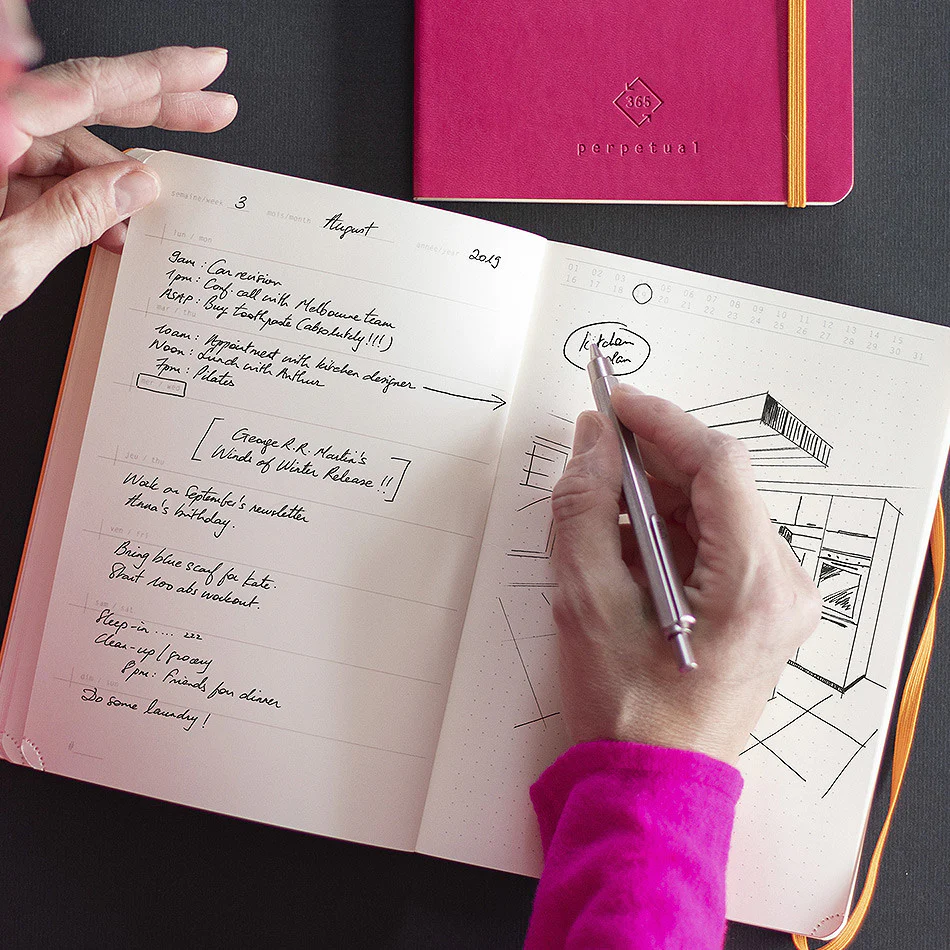 365
perpetual
semaine/week 3 mois/month August année/year 2019
lun / mon
9am : Car revision
1pm : Conf. call with Melbourne team
ASAP : Buy toothpaste (absolutely!!!)
mar / thu
10am : Appointment with kitchen designer
Noon : Lunch with Arthur
7pm : Pilates
mer / wed
[George R.R. Martin's
Winds of Winter Release !!]
jeu / thu
Work on September's newsletter
Anna's birthday.
ven / fri
Bring blue scarf for Kate.
Start 100 abs workout.
sam / sat
Sleep-in .... zzz
Clean-up / grocery
8pm : Friends for dinner
dim / sun
Do some laundry !
01 02 03 05 06 07 08 09 10 11 12 13 14 15
16 17 18 20 21 22 23 24 25 26 27 28 29 30 31
Kitchen